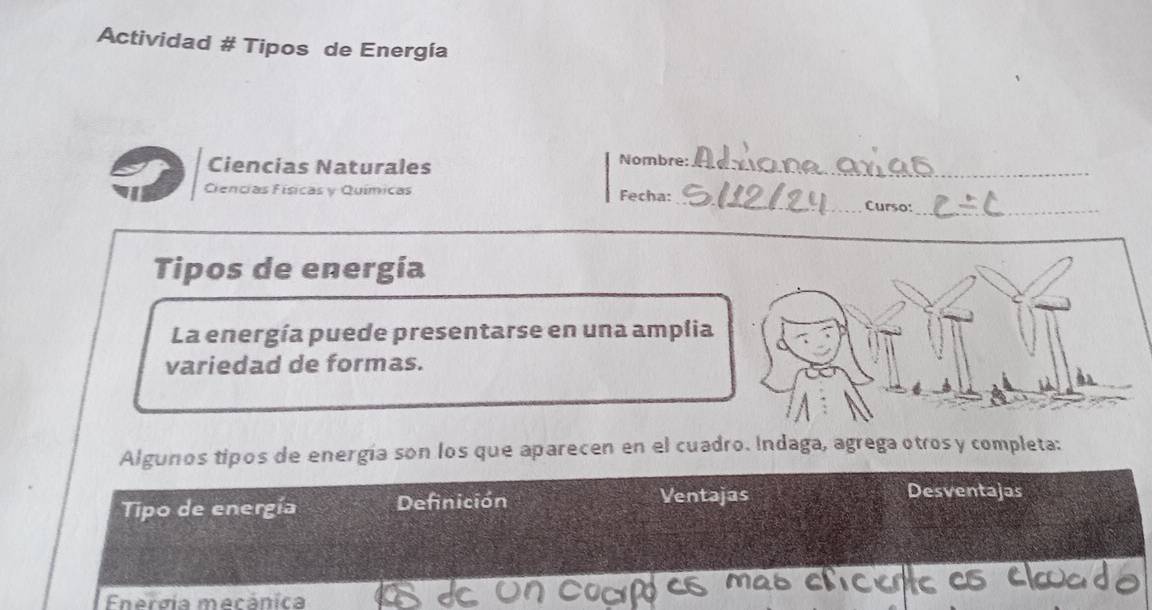 Actividad # Tipos de Energía
Ciencias Naturales
Ciencias Físicas y Químicas
Nombre: Adriana arias
Fecha: 5/12/24 Curso: 2÷C
Tipos de energía
La energía puede presentarse en una amplia
variedad de formas.
Algunos tipos de energía son los que aparecen en el cuadro. Indaga, agrega otros y completa:
Tipo de energía Definición Ventajas Desventajas
Energía mecánica de un es mas es elevado